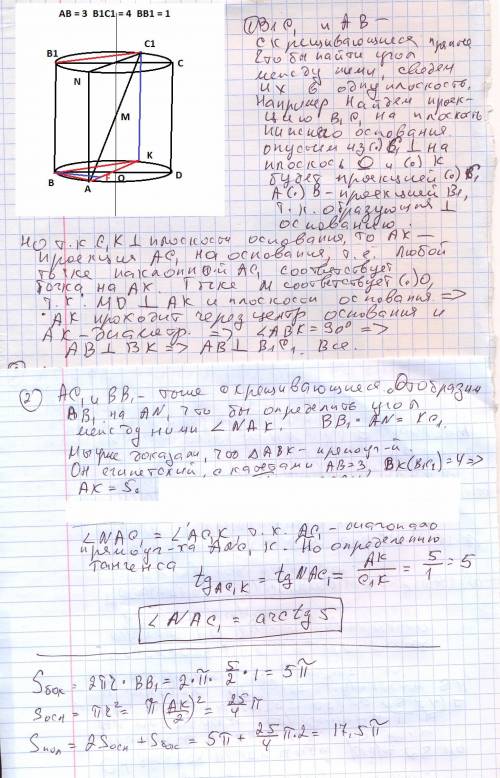 AB = 3 B1C1 = 4 BB1 = 1
B1
C1
C
N
M
K
B
A
O
D
① B₁C₁ и AB –
скрещивающиеся прямые
Что бы найти угол
между ними, сведем
их в одну плоскость.
Например найдем проек-
цию B₁C₁ на плоскость
нижнего основания.
опустим из (·) C₁ ⊥ на
плоскость O и (·) K
будет проекцией (·) C₁
А (·) B – проекцией B₁,
т.к. образующая ⊥
основанию.
Но т.к C₁K ⊥ плоскости основания, то AK –
проекция AC₁ на основания, т.е. Любой
точке наклонной AC₁ соответствует
точка на AK. Точке M соответствует (·) O,
т.к. MO ⊥ AK и плоскости основания =>
AK проходит через центр основания и
AK – диаметр. => ∠ABK = 90° =>
AB ⊥ BK => AB ⊥ B₁C₁. Все.
② AC₁ и BB₁ – тоже скрещивающиеся. Отобразим
BB₁ на AN, что бы определить угол
между ними ∠NAK. BB₁ = AN = KC₁
Мы уже доказали, что △ABK – прямоуг-й.
Он египетский, с катетами AB=3, BK(B₁C₁)=4 =>
AK = 5.
∠NAC₁ = ∠AC₁K, т.к. AC₁ – диагональ
прямоуг-ка ANC₁K. По определению
тангенса
tg AC₁K = tg NAC₁ = AK/C₁K = 5/1 = 5
∠NAC₁ = arctg 5
Sбок = 2πr · BB₁ = 2·π· 5/2 · 1 = 5π
Sосн = πr² = π(AK/2)² = 25/4 π
Sпол = 2Sосн + Sбок = 5π + 25/4 π·2 = 17,5π